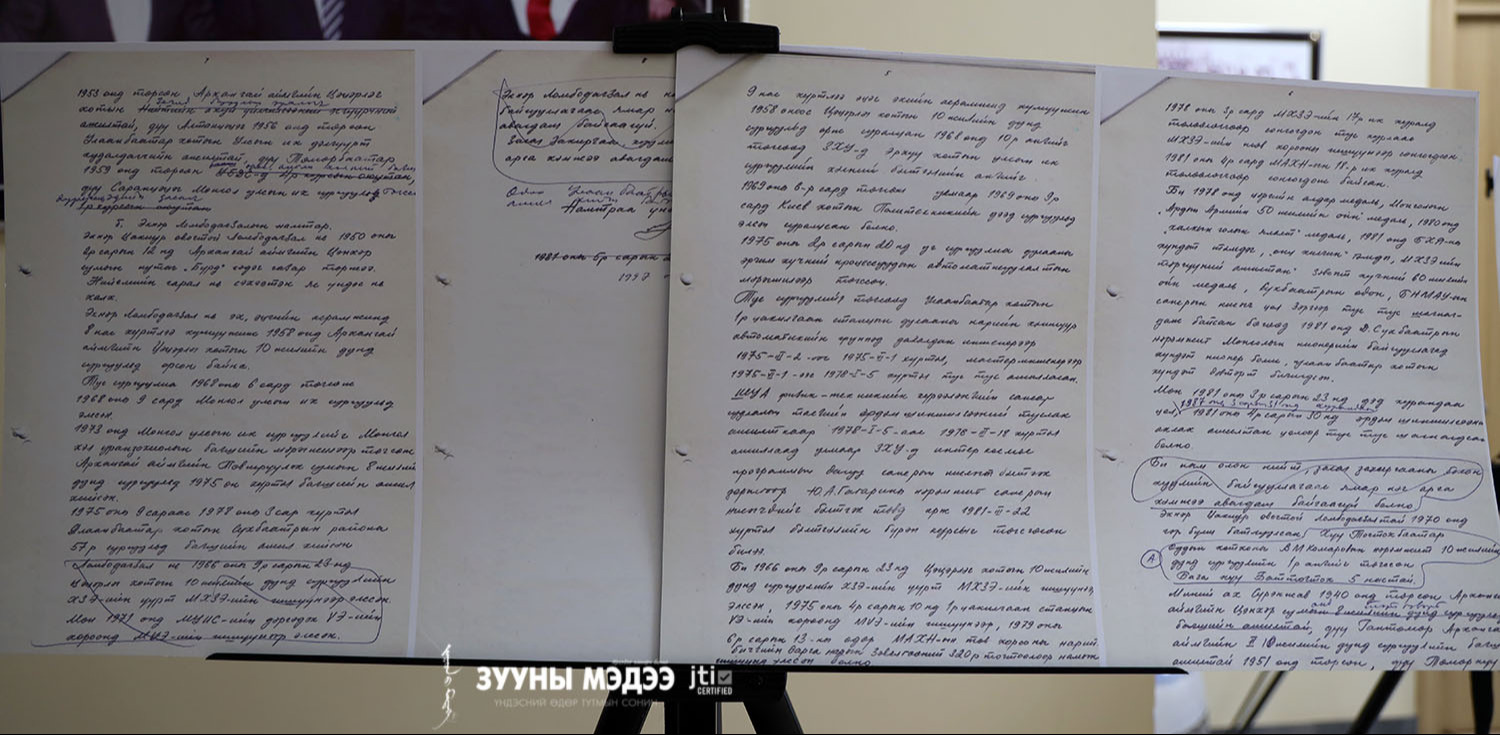 7
1953 онд торсон Архангай аймгийн Цэцэрлэг
хотын
ажилтай, дүү Алтанцэцэг 1956 онд торсон
Улаанбаатар хотын Улсын их дэлгүүрт
худалдагчийн ажилтай, дүү Томорбаатар
1959 онд торсон
дүү Саранцэцэг Монгол улсын их сургуульд
Б. Экнэр Ломбодагвалын намтар.
Экнэр Цакиур овогтой Ломбодагвал нь 1950 оны
8р сарын 12 нд Архангай аймгийн Цэнхэр
сумын нутаг "Бурд" гэдэг газар торжээ.
Нийгмийн гарал нь сэхээтэн яс үндэс нь
халх.
Экнэр Ломбодагвал нь эх, эцгийн асрамжинд
8 нас хүртлээ хүмүүжиж 1958 онд Архангай
аймгийн Цэцэрлэг хотын 10 жилийн дунд
сургуульд орсон байна.
Тус сургуулиа 1968 оны 6 сард тогсож
1968 оны 9 сард Монгол улсын их сургуульд
элсэж
1973 онд Монгол улсын их сургуулийг Монгол
хэл уранзохиолын багшийн мэргэжлээр тогсож
Архангай аймгийн Товшрүүлэх сумын 8 жилийн
дунд сургуульд 1975 он хүртэл багшийн ажил
хийсэн.
1975 оны 9 сараас 1978 оны 3 сар хүртэл
Улаанбаатар хотын Сүхбаатрын районы
57р сургуульд багшийн ажил хийсэн
Ломбодагвал нь 1966 оны 9р сарын 23-нд
Цэцэрлэг хотын 10 жилийн дунд сургуулийн
ХЗЭ-ийн үүрт МХЗЭ-ийн гишүүнээр элссэн.
Мон 1971 онд МУИС-ийн дэргэдэх ҮЭ-ийн
хороонд МҮЭ-ийн гишүүнээр элссэн.
8
Экнэр Ломбодагвал нь
байгуулагаас ямар н
авагдаж байгаагүй.
засаг захиргаа,
арга хэмжээ авагдаж
Намтраа үн
1981 оны 5р сарын
1997
5
9 нас хүртлээ эцэг эхийн асрамжинд хүмүүжиж
1958 оноос Цэцэрлэг хотын 10 жилийн дунд
сургуульд орж суралцан 1968 онд 10р ангийг
тогсоод ЗХУ-д Эрхүү хотын улсын их
сургуулийн хэлний бэлтгэлийн ангийг
1969 оны 6-р сард тогсон улмаар 1969 оны 9р
сард Киев хотын Политехникийн дээд сургуульд
элсэн суралцсан болно.
1975 оны 2р сарын 20 нд уг сургуулиа дулааны
эрчим хүчний процессуудын автоматжуулалтын
мэргэжлээр тогссон.
Тус сургуулийг тогсоод Улаанбаатар хотын
1р цахилгаан станцын дулааны нарийн хэмжүүр
автоматикийн группд даамал инженерээр
1975-III-2-оос 1975-V-1 хүртэл, мастер-инженерээр
1975-V-1-оос 1978-I-5 хүртэл тус тус ажилласан.
ШУА физик-техникийн хүрээлэнгийн сансар
судлалын тасгийн эрдэм шинжилгээний туслах
ажилтнаар 1978-I-5-аас 1978-III-18 хүртэл
ажиллаад улмаар ЗХУ-д интеркосмос
программын дагуу сансрын нисгэгч бэлтгэх
зорилгоор Ю.А.Гагарины нэрэмжит сансрын
нисгэгчдийг бэлтгэх төвд ирж 1981-II-22
хүртэл бэлтгэлийн бүрэн курсыг тогссон
билээ.
Би 1966 оны 9р сарын 23 нд Цэцэрлэг хотын 10 жилийн
дунд сургуулийн ХЗЭ-ийн үүрт МХЗЭ-ийн гишүүнээр
элссэн, 1975 оны 4р сарын 10 нд 1р цахилгаан станцын
ҮЭ-ийн хороонд МҮЭ-ийн гишүүнээр, 1979 оны
6р сарын 13-ны одор МАХН-ын тов хорооны нарийн
бичгийн дарга нарын зовлолгооний 320р тогтоолоор намын
гишүүнд элссэн болно
6
1978 оны 5р сард МХЗЭ-ийн 17р их хуралд
толоологчоор сонгогдон тус хурлаас
МХЗЭ-ийн тов хорооны гишүүнээр сонгогдсон.
1981 оны 4р сард МАХН-ын 18-р их хуралд
толоологчоор сонгогдсон байсан.
Би 1978 онд цэргийн алдар медаль, Монголын
"Ардын Армийн 50 жилийн ойн" медаль, 1980 онд
"Халхын голын ялалт" медаль, 1981 онд БХА-ны
хүндэт тэмдэг, "Онц нисгэгч" тэмдэг, МХЗЭ-ийн
"Тэргүүний ажилтан", Зэвсэгт хүчний 60 жилийн
ойн медаль, Сүхбаатрын одон, БНМАУ-ын
сансрын нисгэгч цол зэргээр тус тус шагнаг-
даж байсан богоод 1981 онд Д.Сүхбаатрын
нэрэмжит Монголын пионерийн байгууллагад
хүндэт пионер болж, Улаанбаатар хотын
хүндэт дэвтэрт бичигдсэн.
Мон 1981 оны 3р сарын 23 нд дэд хурандаа
цол, 1981 оны 4р сарын 30 нд эрдэм шинжилгээний
ахлах ажилтан цолоор тус тус шагнагдсан
болно.
Би нам олон нийт, засаг захиргааны болон
хуулийн байгууллагаас ямар нэг арга
хэмжээ авагдаж байгаагүй болно
Экнэр Цакиур овогтой Ломбодагвалтай 1970 онд
гэр бүлж батлуулсан. Хүү Тогтохбаатар
А
Оддын хотхоны В.М.Комаровын нэрэмжит 10 жилийн
дунд сургуулийн 1р ангийг тогссон
Бага хүү Баттогтох 5 настай.
Миний ах Сурэнжав 1940 онд торсон Архангай
аймгийн Цэнхэр сумын 8 жилийн дунд сургуульд
багшийн ажилтай, дүү Гантомор Архангай
аймгийн II 10 жилийн дунд сургуулийн багш
ажилтай 1951 онд торсон, дүү Томорхүү
ЗУУНЫ МЭДЭЭ
ҮНДЭСНИЙ ӨДӨР ТУТМЫН СОНИН
jti
CERTIFIED